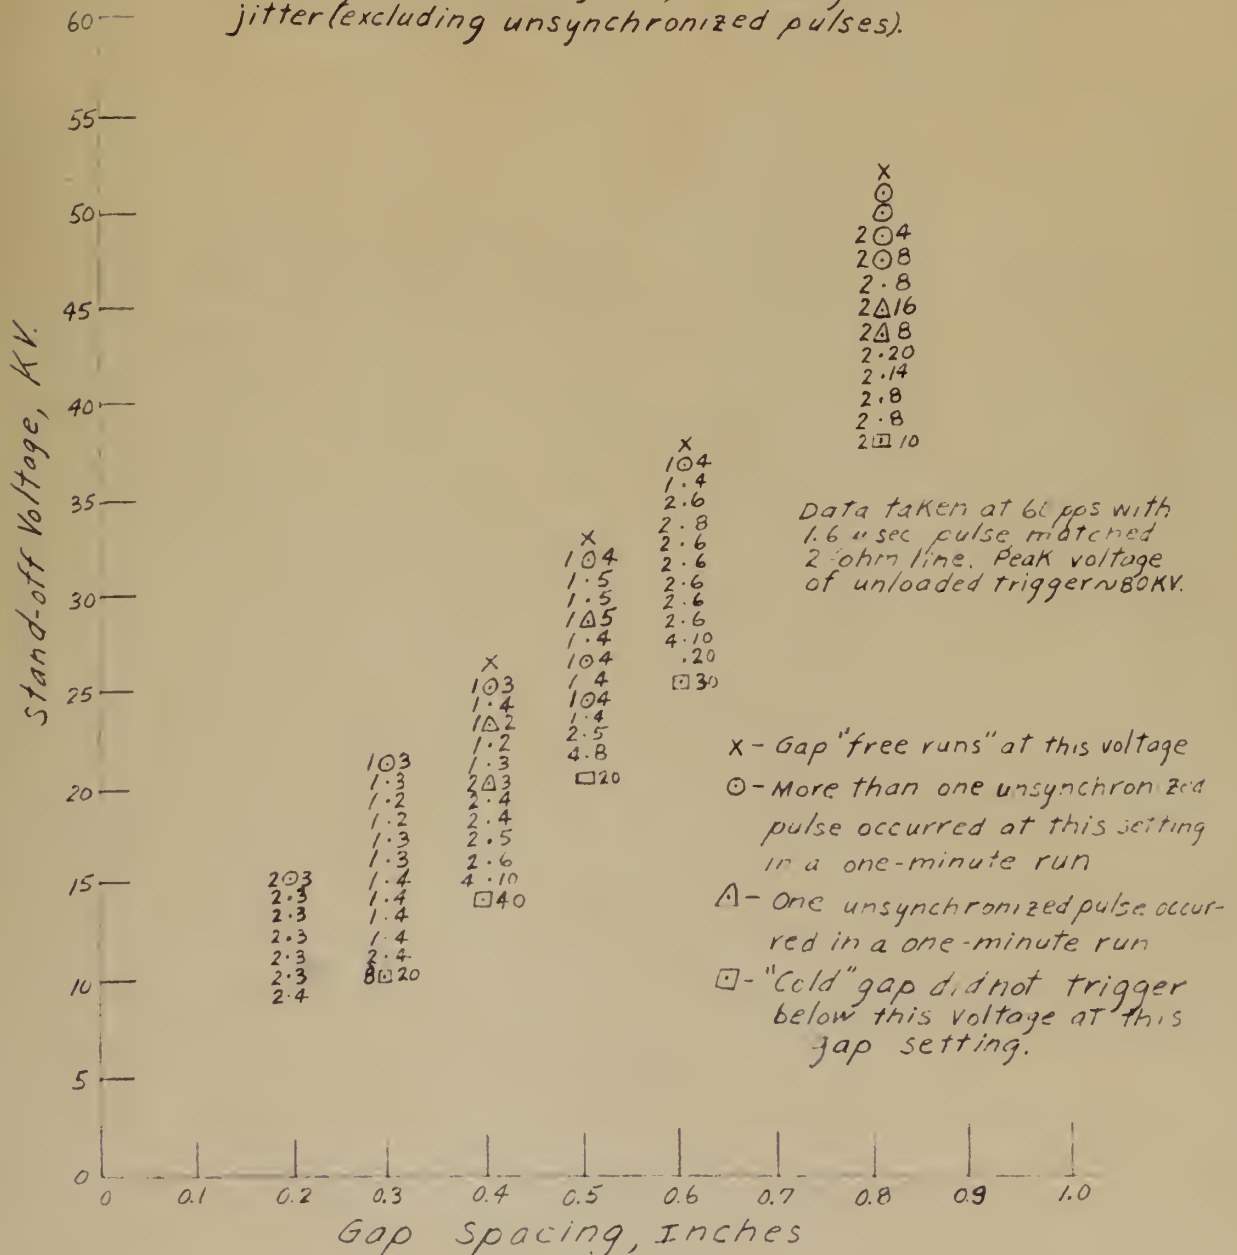 jitter (excluding unsynchronized pulses).
60
55
50
45
40
35
30
25
20
15
10
5
0
Stand-off Voltage, KV.
X
⊙
⊙
2⊙4
2⊙8
2·8
2△16
2△8
2·20
2·14
2·8
2·8
2⊡10
X
1⊙4
1·4
2·6
2·8
2·6
2·6
2·6
2·6
2·6
4·10
·20
⊡30
X
1⊙4
1·5
1·5
1△5
1·4
1⊙4
1 4
1⊙4
1·4
2·5
4·8
⊡20
X
1⊙3
1·4
1△2
1·2
1·3
2△3
2·4
2·4
2·5
2·6
4·10
⊡40
1⊙3
1·3
1·2
1·2
1·3
1·3
1·4
1·4
1·4
1·4
2·4
8⊡20
2⊙3
2·3
2·3
2·3
2·3
2·3
2·4
Data taken at pps with
1.6 μsec pulse matched
2-ohm line. Peak voltage
of unloaded trigger~80KV.
X - Gap "free runs" at this voltage
⊙ - More than one unsynchronized
pulse occurred at this setting
in a one-minute run
△ - One unsynchronized pulse occur-
red in a one-minute run
⊡ - "Cold" gap did not trigger
below this voltage at this
gap setting.
0 0.1 0.2 0.3 0.4 0.5 0.6 0.7 0.8 0.9 1.0
Gap Spacing, Inches